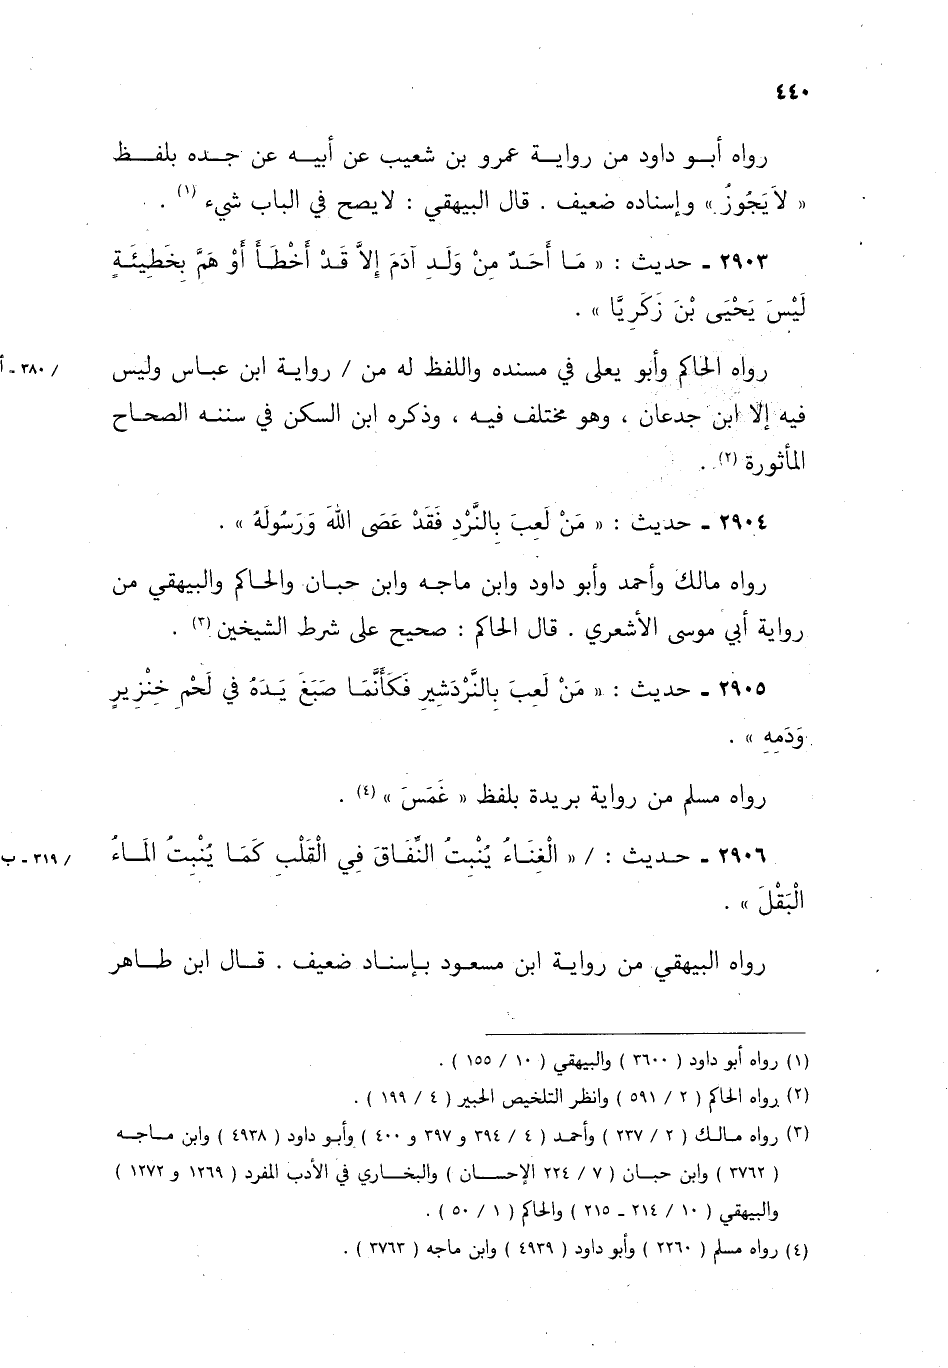 ٤٤٠
رواه أبو داود من رواية عمرو بن شعيب عن أبيه عن جده بلفظ
« لاَيَجُوزُ » وإسناده ضعيف . قال البيهقي : لايصح في الباب شيء (١) .
٢٩٠٣ ـ حديث : « مَا أَحَدٌ مِنْ وَلَدِ آدَمَ إِلاَّ قَدْ أَخْطَأَ أَوْ هَمَّ بِخَطِيئَةٍ
لَيْسَ يَحْيَى بْنَ زَكَرِيَّا » .
رواه الحاكم وأبو يعلى في مسنده واللفظ له من / رواية ابن عباس وليس
/ ٣٨٠ ـ أ
فيه إلا ابن جدعان ، وهو مختلف فيه ، وذكره ابن السكن في سننه الصحاح
المأثورة (٢) .
٢٩٠٤ ـ حديث : « مَنْ لَعِبَ بِالنَّرْدِ فَقَدْ عَصَى اللهَ وَرَسُولَهُ » .
رواه مالك وأحمد وأبو داود وابن ماجه وابن حبان والحاكم والبيهقي من
رواية أبي موسى الأشعري . قال الحاكم : صحيح على شرط الشيخين (٣) .
٢٩٠٥ ـ حديث : « مَنْ لَعِبَ بِالنَّرْدَشِيرِ فَكَأَنَّمَا صَبَغَ يَدَهُ فِي لَحْمِ خِنْزِيرٍ
وَدَمِهِ » .
رواه مسلم من رواية بريدة بلفظ « غَمَسَ » (٤) .
٢٩٠٦ ـ حديث : / « الْغِنَاءُ يُنْبِتُ النِّفَاقَ فِي الْقَلْبِ كَمَا يُنْبِتُ الْمَاءُ
/ ٣١٩ ـ ب
الْبَقْلَ » .
رواه البيهقي من رواية ابن مسعود بإسناد ضعيف . قال ابن طاهر
(١) رواه أبو داود ( ٣٦٠٠ ) والبيهقي ( ١٠ / ١٥٥ ) .
(٢) رواه الحاكم ( ٢ / ٥٩١ ) وانظر التلخيص الحبير ( ٤ / ١٩٩ ) .
(٣) رواه مالك ( ٢ / ٢٣٧ ) وأحمد ( ٤ / ٣٩٤ و ٣٩٧ و ٤٠٠ ) وأبو داود ( ٤٩٣٨ ) وابن ماجه
( ٣٧٦٢ ) وابن حبان ( ٧ / ٢٢٤ الإحسان ) والبخاري في الأدب المفرد ( ١٢٦٩ و ١٢٧٢ )
والبيهقي ( ١٠ / ٢١٤ ـ ٢١٥ ) والحاكم ( ١ / ٥٠ ) .
(٤) رواه مسلم ( ٢٢٦٠ ) وأبو داود ( ٤٩٣٩ ) وابن ماجه ( ٣٧٦٣ ) .